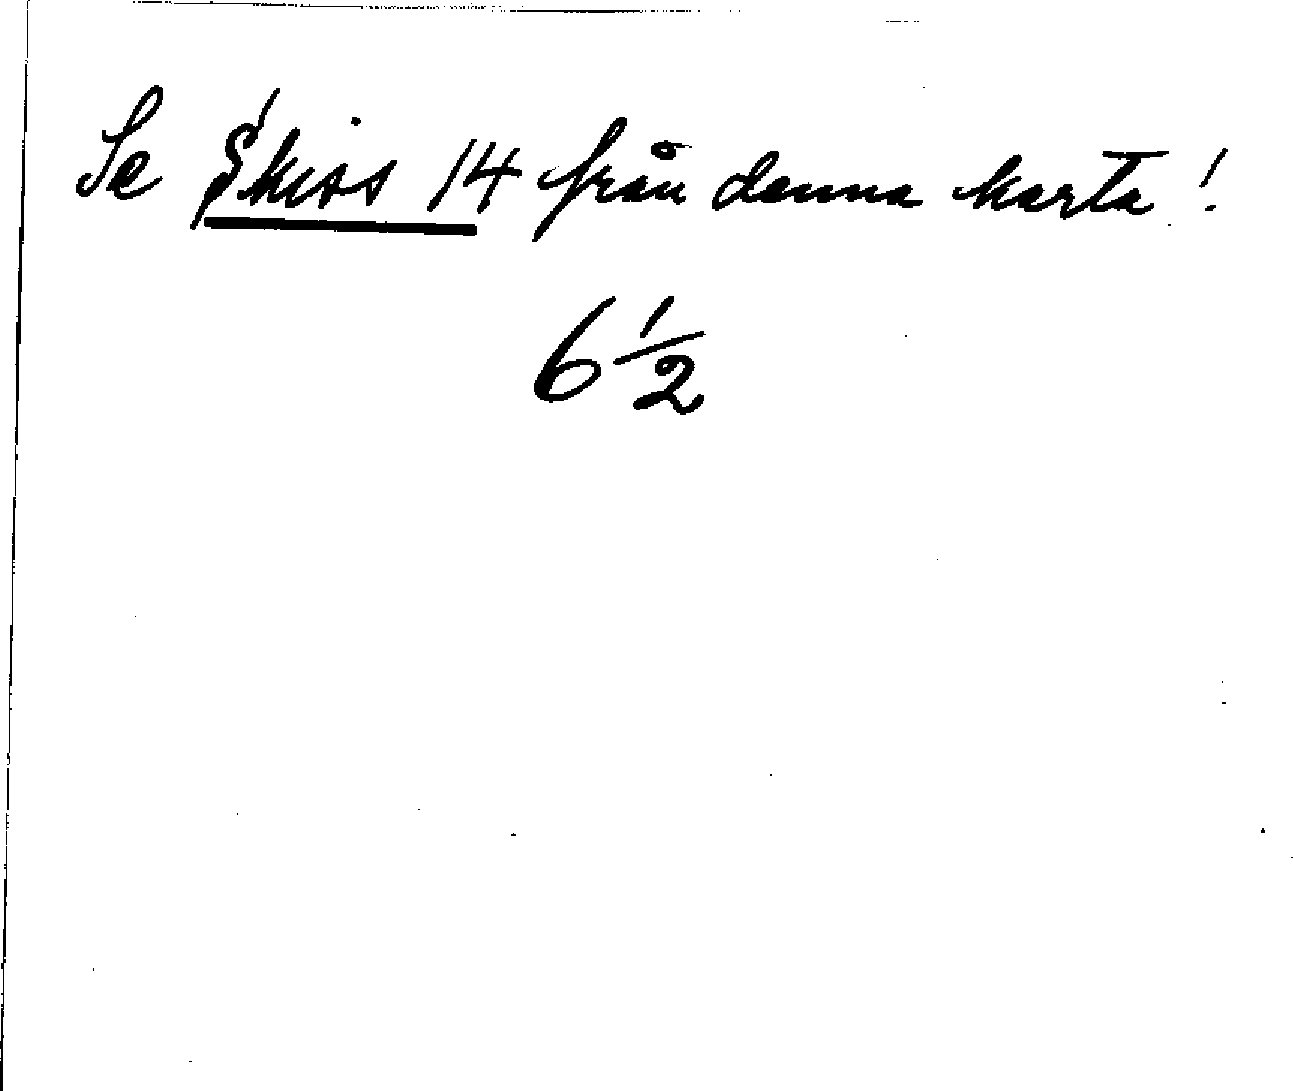 Se Skiss 14 från denna karta!
6 1/2